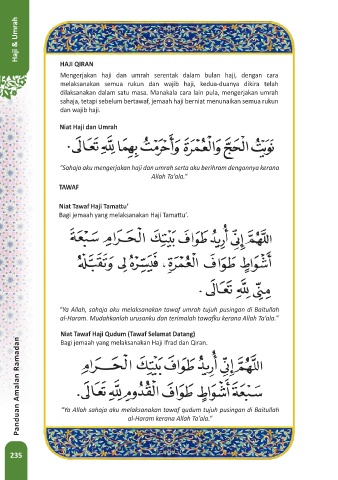 Haji & Umrah
HAJI QIRAN
Mengerjakan haji dan umrah serentak dalam bulan haji, dengan cara
melaksanakan semua rukun dan wajib haji, kedua-duanya dikira telah
dilaksanakan dalam satu masa. Manakala cara lain pula, mengerjakan umrah
sahaja, tetapi sebelum bertawaf, jemaah haji berniat menunaikan semua rukun
dan wajib haji.
Niat Haji dan Umrah
نَوَيْتُ الْحَجَّ وَالْعُمْرَةَ وَأَحْرَمْتُ بِهِمَا لِلَّهِ تَعَالَى.
"Sahaja aku mengerjakan haji dan umrah serta aku berihram dengannya kerana
Allah Ta'ala."
TAWAF
Niat Tawaf Haji Tamattu'
Bagi jemaah yang melaksanakan Haji Tamattu'.
اللَّهُمَّ إِنِّي أُرِيدُ طَوَافَ بَيْتِكَ الْحَرَامِ سَبْعَةَ
أَشْوَاطٍ طَوَافَ الْعُمْرَةِ، فَيَسِّرْهُ لِي وَتَقَبَّلْهُ
مِنِّي لِلَّهِ تَعَالَى.
"Ya Allah, sahaja aku melaksanakan tawaf umrah tujuh pusingan di Baitullah
al-Haram. Mudahkanlah urusanku dan terimalah tawafku kerana Allah Ta'ala."
Niat Tawaf Haji Qudum (Tawaf Selamat Datang)
Bagi jemaah yang melaksanakan Haji Ifrad dan Qiran.
اللَّهُمَّ إِنِّي أُرِيدُ طَوَافَ بَيْتِكَ الْحَرَامِ
سَبْعَةَ أَشْوَاطٍ طَوَافَ الْقُدُومِ لِلَّهِ تَعَالَى.
"Ya Allah sahaja aku melaksanakan tawaf qudum tujuh pusingan di Baitullah
al-Haram kerana Allah Ta'ala."
Panduan Amalan Ramadan
235